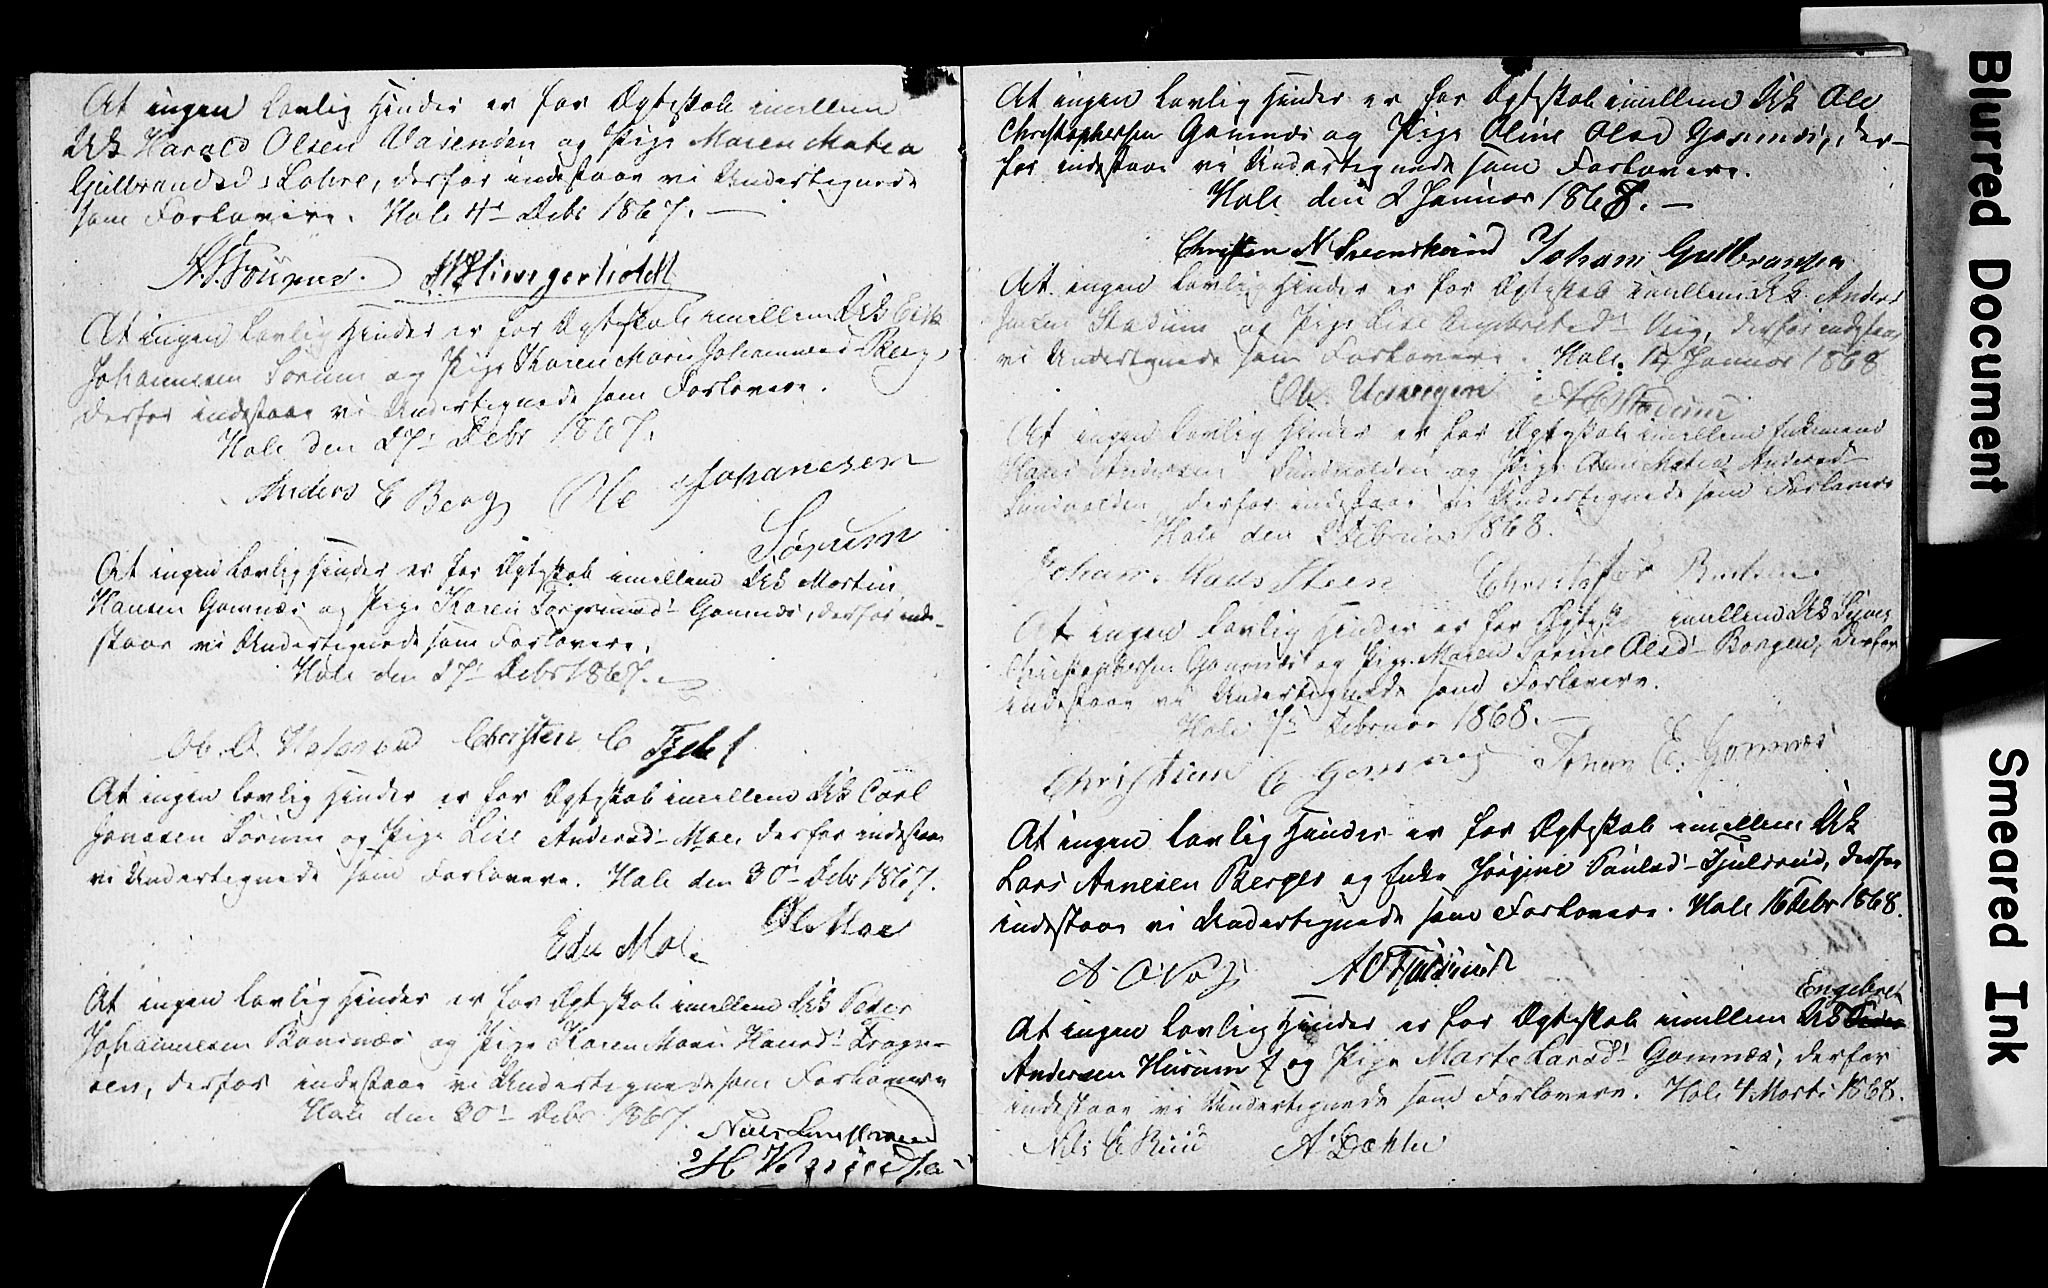 At ingen lovlig Hinder er for Ægteskab imellem
Uk Harald Olsen Vasenden og Pige Maren Mathea
Gulbrandsd: Lohre, derfor indestaae vi Undertegnede
som Forlovere. Hole 4de Debr 1867.
At ingen lovlig Hinder er for Ægteskab imellem Uk Erik
Johannesen Sørum og Pige Karen Marie Johannesd Berg,
derfor indestaae vi Undertegnede som Forlovere.
Hole den 27' Debr 1867.
Anders C Berg Ole Johanesen
Sørum
At ingen lovlig Hinder er for Ægteskab imellem Uk Martin
Hansen Gomnæs og Pige Karen Torgrimsd' Gomnæs, derfor inde-
staae vi Undertegnede som Forlovere.
Hole den 27' Debr 1867.
Ole O Christen C
At ingen lovlig Hinder er for Ægteskab imellem Uk Carl
Jonasen Sørum og Pige Lise Andersd' Moe, derfor indestaae
vi Undertegnede som Forlovere. Hole den 30' Debr 1867.
Ole Moe
Edu Moe
At ingen lovlig Hinder er for Ægteskab imellem Uk Peder
Johannesen Bønsnæs og Pige Karen Marie Hansd' Fragn-
øen, derfor indestaae vi Undertegnede som Forlovere
Hole den 30' Debr 1867.
Niels
At ingen lovlig Hinder er for Ægteskab imellem Uk Ole
Christophersen Gomnæs og Pige Oline Olsd Gomnæs, der-
for indestaae vi Undertegnede som Forlovere.
Hole den 2 Januar 1868.
Christen N Svenskerud Johann Gulbransen
At ingen lovlig Hinder er for Ægteskab imellem Uk Anders
Stadum og Pige Lise Engebretsd' Viig, derfor indestaae
vi Undertegnede som Forlovere. Hole Januar 1868
Ole A Stadum
At ingen lovlig Hinder er for Ægteskab imellem Enkemand
Hans Andersen Sundvolden og Pige Anne Mathea Andersd
Sundvolden, derfor indestaae vi Undertegnede som Forlovere
Hole den Februar 1868.
Johan Mads Steen Christofer
At ingen lovlig Hinder er for Ægtesk imellem Uk
Christophersen Gomnæs og Pige Maren Sørine Olsd' Borgen, derfor
indestaae vi Undertegnede som Forlovere.
Hole 7' Februar 1868.
Christian C Gomnæs Johan E. Gomnæs
At ingen lovlig Hinder er for Ægteskab imellem Uk
Lars Arnesen Berger og Enke Jørgine Paulsd' Fjulsrud, derfor
indestaae vi Undertegnede som Forlovere. Hole 16 Febr 1868.
A O Fjulsrud
Engebret
At ingen lovlig Hinder er for Ægteskab imellem Uk
Andersen Hurum og Pige Marte Larsd' Gomnæs, derfor
indestaae vi Undertegnede som Forlovere. Hole 4 Marts 1868.
Nils E Ruud A Dæhlie
Blurred Document
Smeared Ink